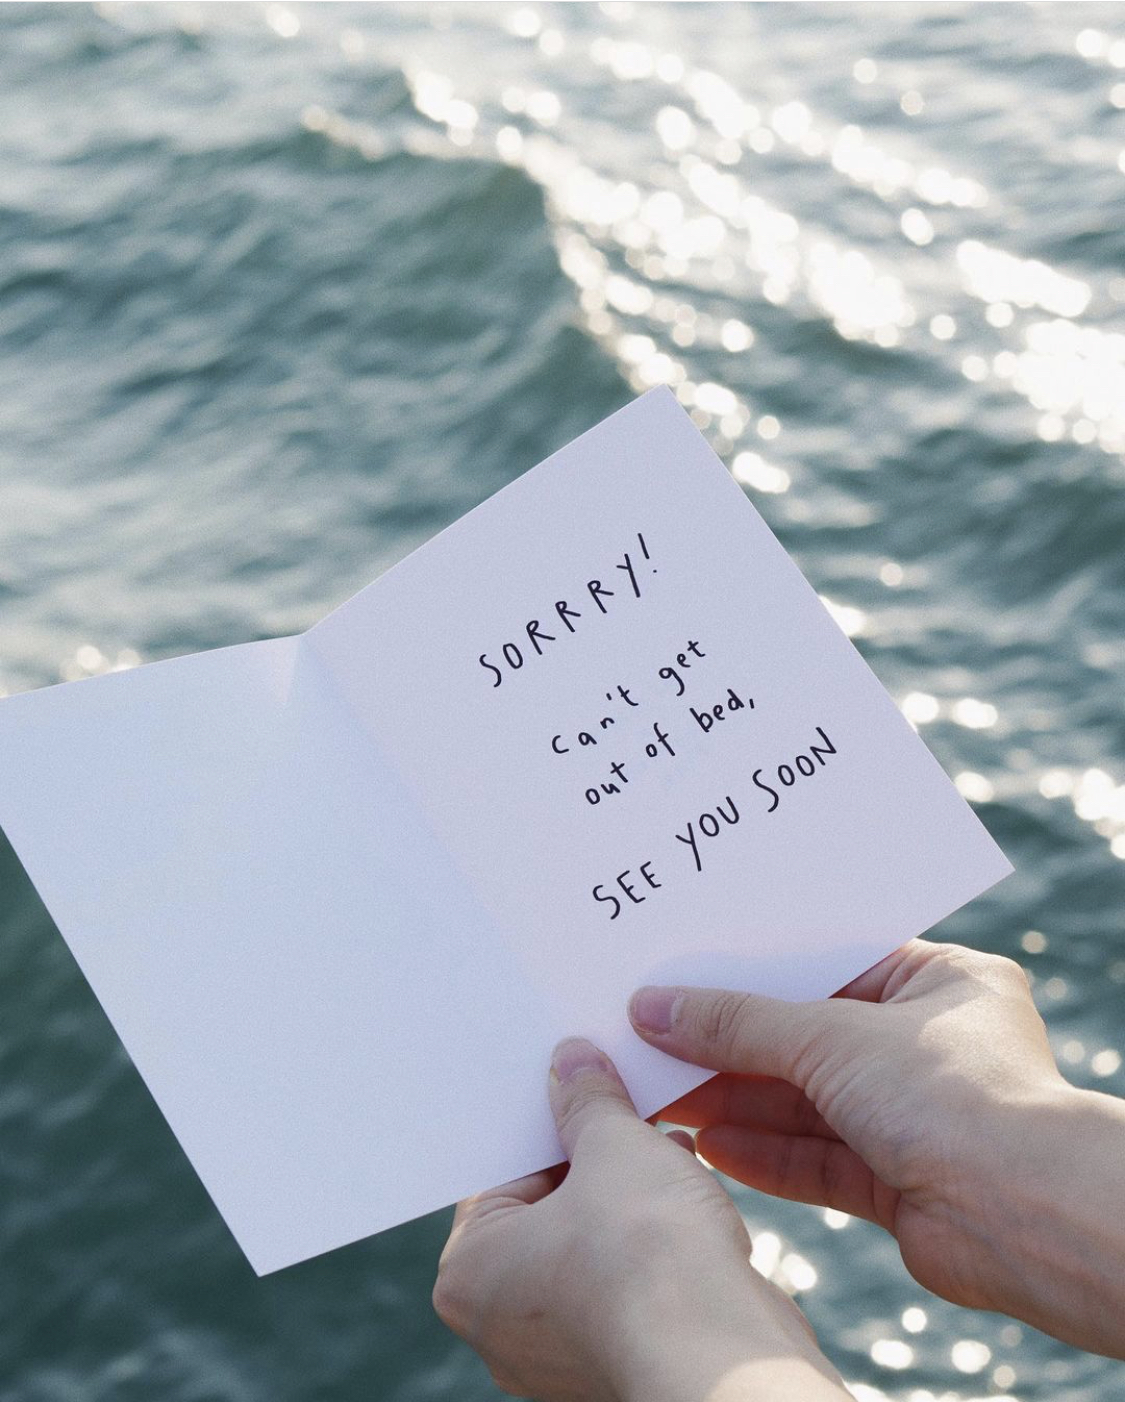 SORRRY!
can't get
out of bed,
SEE YOU SOON